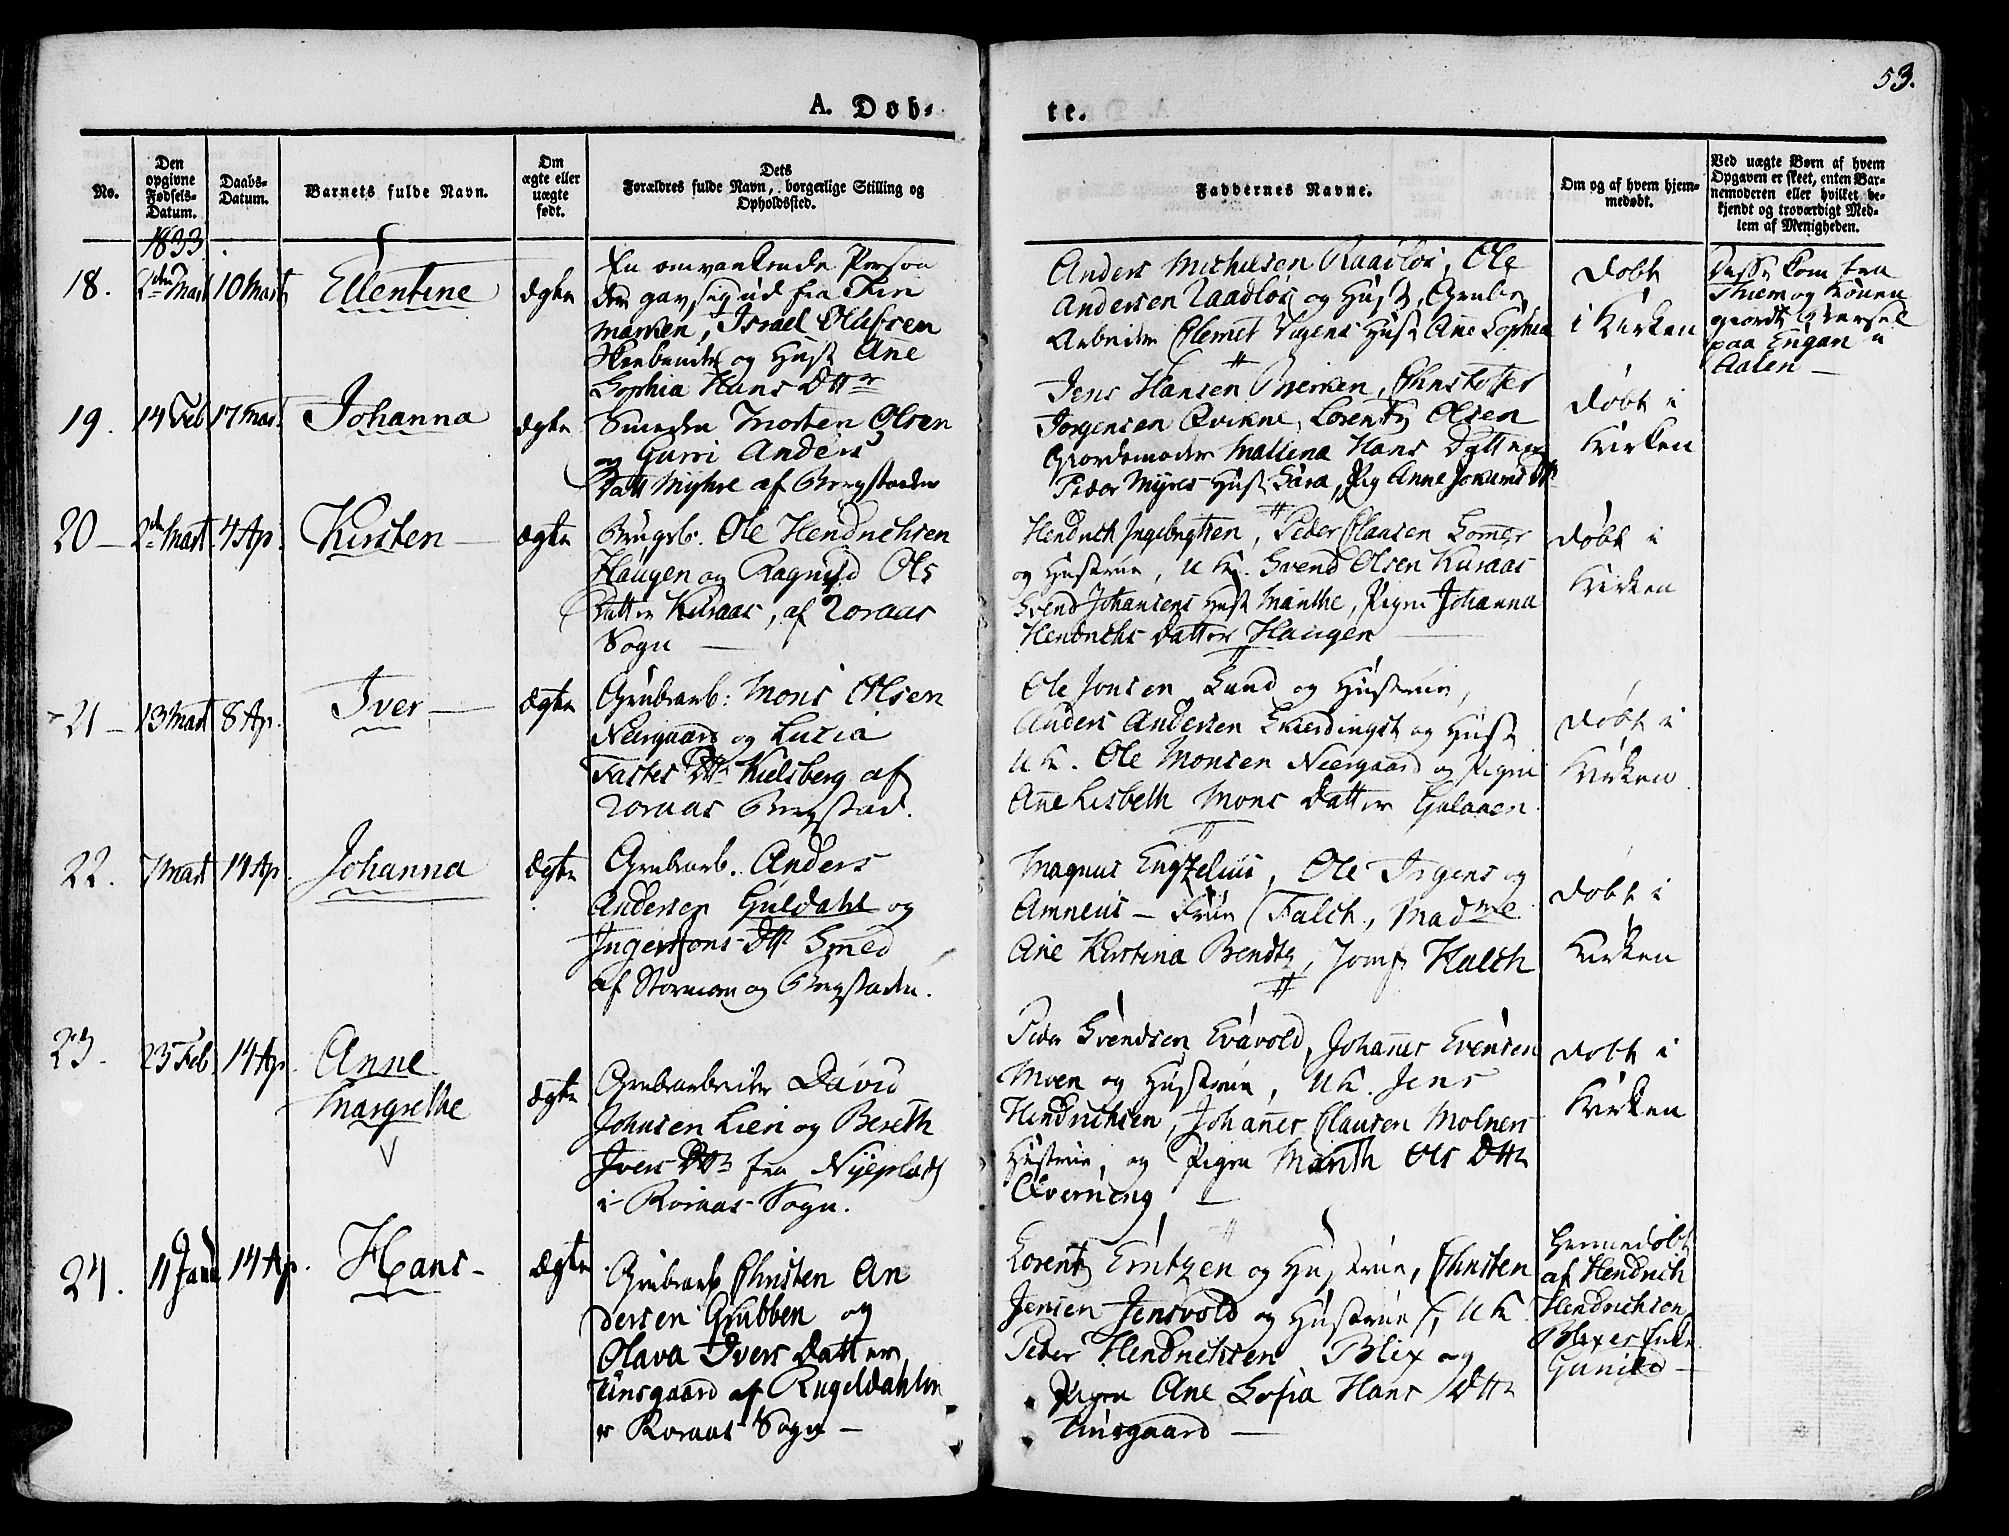 53.
A. Døb-
te.
No.
Den opgivne Fødsels-Datum.
Daabs-Datum.
Barnets fulde Navn.
Om ægte eller uægte født.
Dets Forældres fulde Navn, borgerlige Stilling og Opholdssted.
Faddernes Navne.
Om og af hvem hjemmedøbt.
Ved uægte Børn af hvem Opgaven er skeet, enten Barnemoderen eller hvilket bekjendt og troværdigt Medlem af Menigheden.
1833.
18.
2den Mart
10 Mart
Ellentine
ægte
En omvankende Person
der gav sig ud fra Fin
marken, Israel Olufsen
og Hust Ane
Sophia Hans Dttr
Anders Michelsen Raadlos, Ole
Andersen Raadlos og Hust, Grube
Arbeider Clemet Hust Ane Sophia
Døbt
i Kirken
Disse kom fra
og
paa Engan i
Aalen —
19.
14 Feb
17 Mart
Johanna
ægte
Smeden Morten Olsen
og Gurri Anders
Datt Myhre af Bergstaden
Jens Hansen Brekken, Christofer
Jørgensen Qvikne, Lorentz Olsen
Giordemoder Mallena Hans Datter
Peder Myres Hust Sara, Pig Anne
Døbt i
Kirken
20 —
2den Mart
4 Ap.
Kirsten —
ægte
Brugsb. Ole Hendrichsen
Haugen og Ragnild Ols
Datter Kuraas, af Roraas
Sogn —
Hendrich Ingebrigtsen, Peder Clausen
og Hustrue, UK. Svend Olsen Kuraas
Svend Johansens Hust Marithe, Pigen Johanna
Hendrichs Datter Haugen —
Døbt i
Kirken
21 —
13 Mart
8 Ap.
Iver —
ægte
Grubarb: Mons Olsen
Neergaard og Lucia
Fastes Dttr Kielsberg af
Roraas Bergstad.
Ole Jonsen Sund og Hustrue,
Anders Andersen og Hust
UK. Ole Monsen Neergaard og Pigen
Ane Lisbeth Mons Datter Gulaaen.
Døbt i
Kirken
22.
7 Mart
14 Ap.
Johanna
ægte
Grubarb. Anders
Andersen Guldahl og
Inger Jons Dtt Smed
af og Bergstaden.
Magnus Engzelius, Ole Irgens og
Amneus — Frue Falch, Madme
Ane Kirstina Bendtz, Jomf Halch
Døbt i
Kirken
23.
23 Feb.
14 Ap.
Anne
Margrethe
ægte
Grubarbeider David
Johnsen Lien og Bereth
Ivers Dttr fra Nyeplads
i Roraas Sogn.
Peder Svendsen Evavold, Johanes Evensen
Moen og Hustrue, UK. Jens
Hendrichsen, Johanes Clausen Molner
Hustrue, og Pigen Marith Ols Dttr
Øverneng —
Døbt i
Kirken
24.
11 Janu
14 Ap.
Hans —
ægte
Grubarb Christen An
dersen Grubben og
Olava Ivers Datter
Tinsgaard af Rugeldahlen
i Roraas Sogn —
Lorentz Erntzen og Hustrue, Christen
Jensen Jensvold og Hustrue, UK
Peder Hendrichsen Blix og
Pigen Ane Sofia Hans Dttr
Tinsgaard —
Hiemmedøbt
af Hendrich
Hendrichsen
Blixes Enke
Gunild —